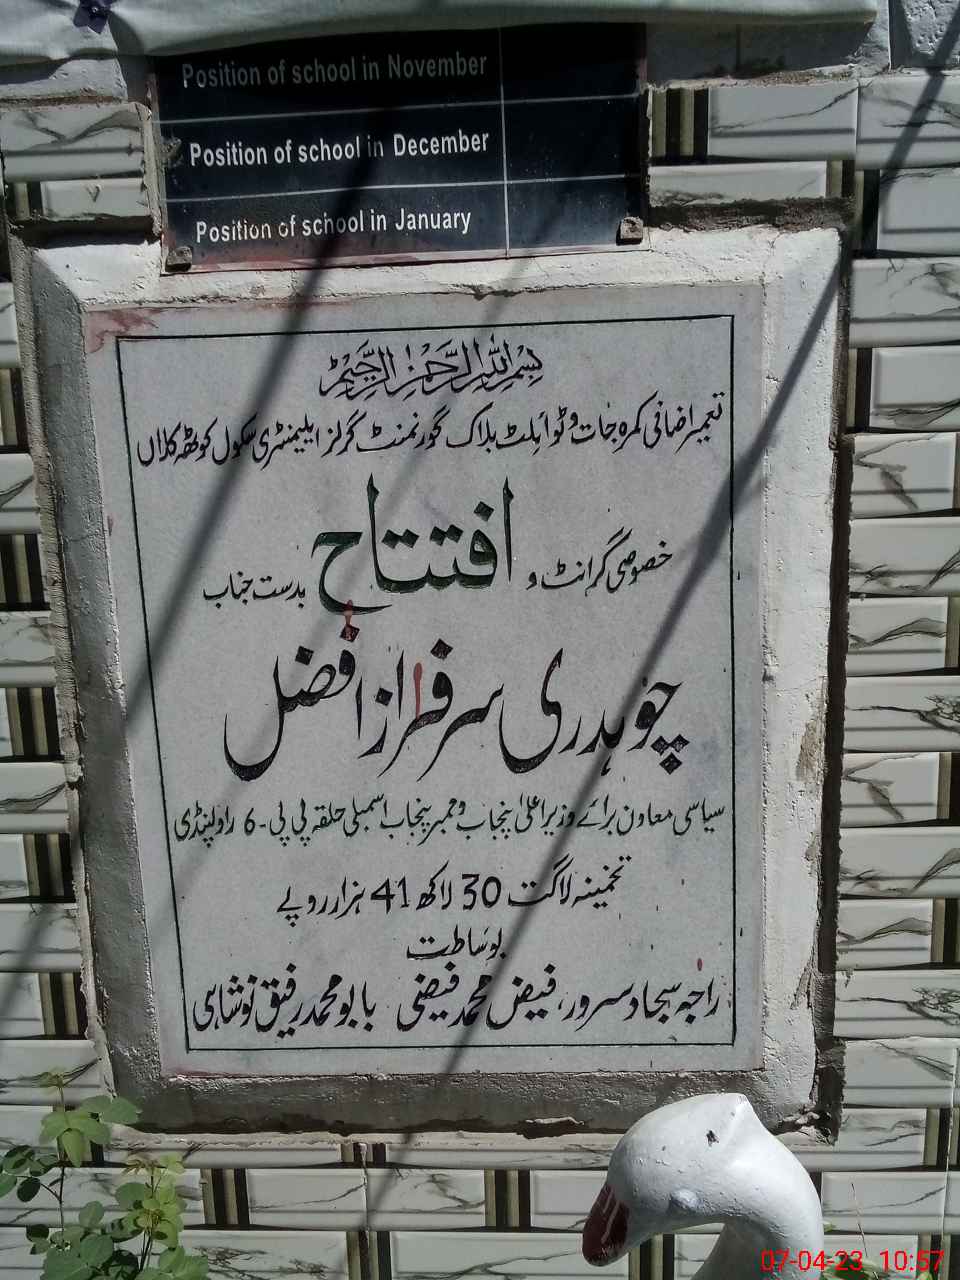 Position of school in November
Position of school in December
Position of school in January
بسم اللہ الرحمن الرحیم
تعمیر اضافی کمرہ جات و ٹوائلٹ بلاک گورنمنٹ گرلز ایلیمنٹری سکول کوٹھہ کلاں
خصوصی گرانٹ و افتتاح بدست جناب
چوہدری سرفراز افضل
سیاسی معاون برائے وزیر اعلیٰ پنجاب و ممبر پنجاب اسمبلی حلقہ پی پی-6 راولپنڈی
تخمینہ لاگت 30 لاکھ 41 ہزار روپے
بوساطت
راجہ سجاد سرور، فیض محمد فیضی بابو محمد رفیق نوشاہی
07-04-23 10:57